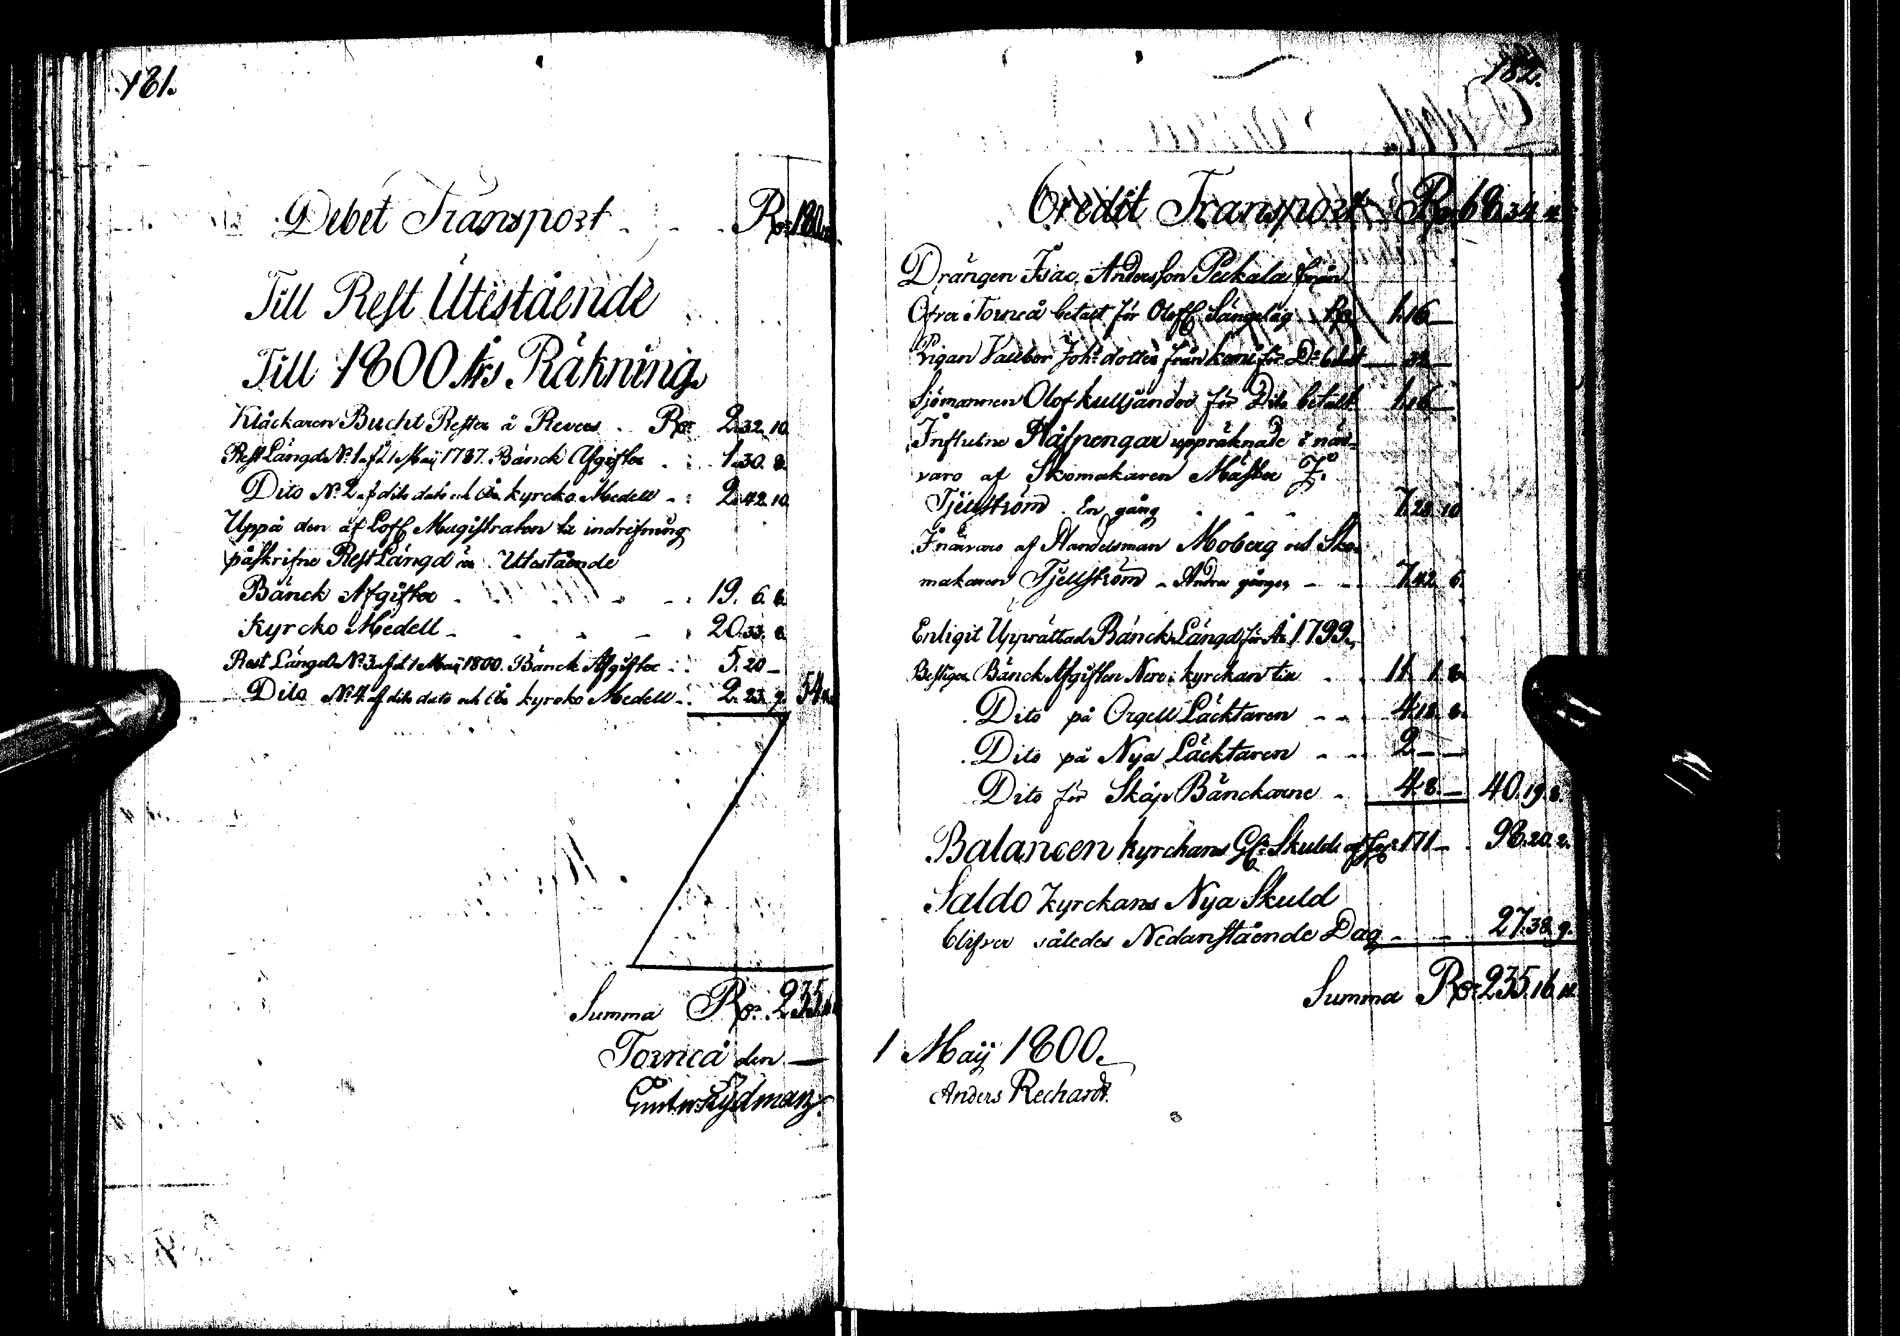 181.
Debet Transport Rdr 180
Till Rest Utestående
Till 1800 Års Räkning.
Klåckaren Bucht Rester å Revers Rdr 2.32.10
Rest Längd N:o 1 af d. 1 Maij 1787. Bänck Afgifter 1.30.8.
Dito N:o 2 af dito dato och Års kyrcko Medell 2.42.10
Uppå den af Loffl Magistraten till indrifning
påskrifne Rest Längd är Utestående
Bänck Afgifter 19. 6. 6.
Kyrcko Medell 20.33. 8.
Rest Längd N:o 3 af d. 1 Maij 1800. Bänck Afgifter 5.20 –
Dito N:o 4 af dito dato och kyrcko Medell 2.23. 9. 54
Summa Rdr 235.
Torneå den —
Gustav Rydman
182.
Credit Transport Rdr 68.34.
Drängen Isac Andersson Peckala från
Öfra Torneå betalt för Oloffl. Sängelag Rdr 1.16 –
Pigan Valbor Joh:s dotter från Kemi för D:o betalt – 32 –
Sjömannen Olof kulljändor för Dito betalt 1.16 –
Influtne Håfpengar uppräknade i när-
varo af Skomakaren Mäster
Tjellström En gång 7.28.10
I närvaro af Handelsman Moberg och Sko-
makaren Tjellström – Andra gången – 7.42. 6.
Enligit Upprättad Bänck Längd för År 1799.
Bestiger Bänck Afgiften Nere i kyrckan till 11. 1. 8.
Dito på Orgell Läcktaren 4.18. 8.
Dito på Nya Läcktaren 2 – –
Dito för Skåp Bänckarne 4.8. – 40.19. 8.
Balancen kyrchans Skuld af 171 – 98.20.2.
Saldo kyrckans Nya Skuld
blifver således Nedanstående Dag 27.38.9.
Summa Rdr 235.16.
1 Maij 1800.
Anders Rechardt.